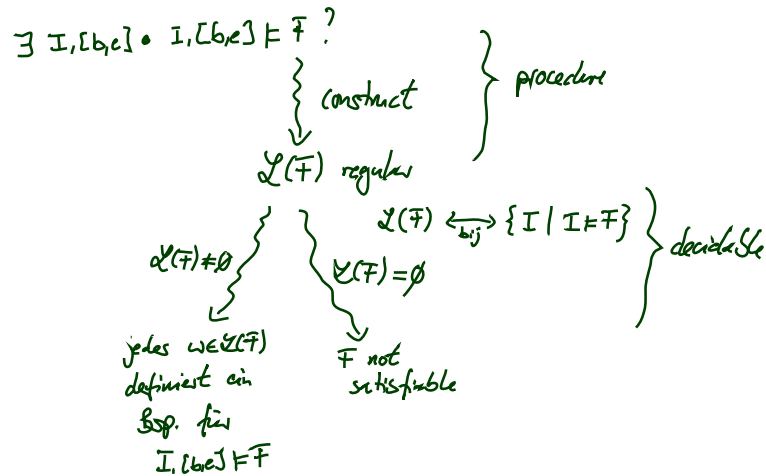 ∃ I,[b,e] • I,[b,e] ⊨ F ?
construct
procedure
L(F) regular
L(F) ⟷ bij {I | I ⊨ F}
decidable
L(F)≠∅
L(F)=∅
jedes w∈L(F)
definiert ein
Bsp. für
I,[b,e] ⊨ F
F not
satisfiable